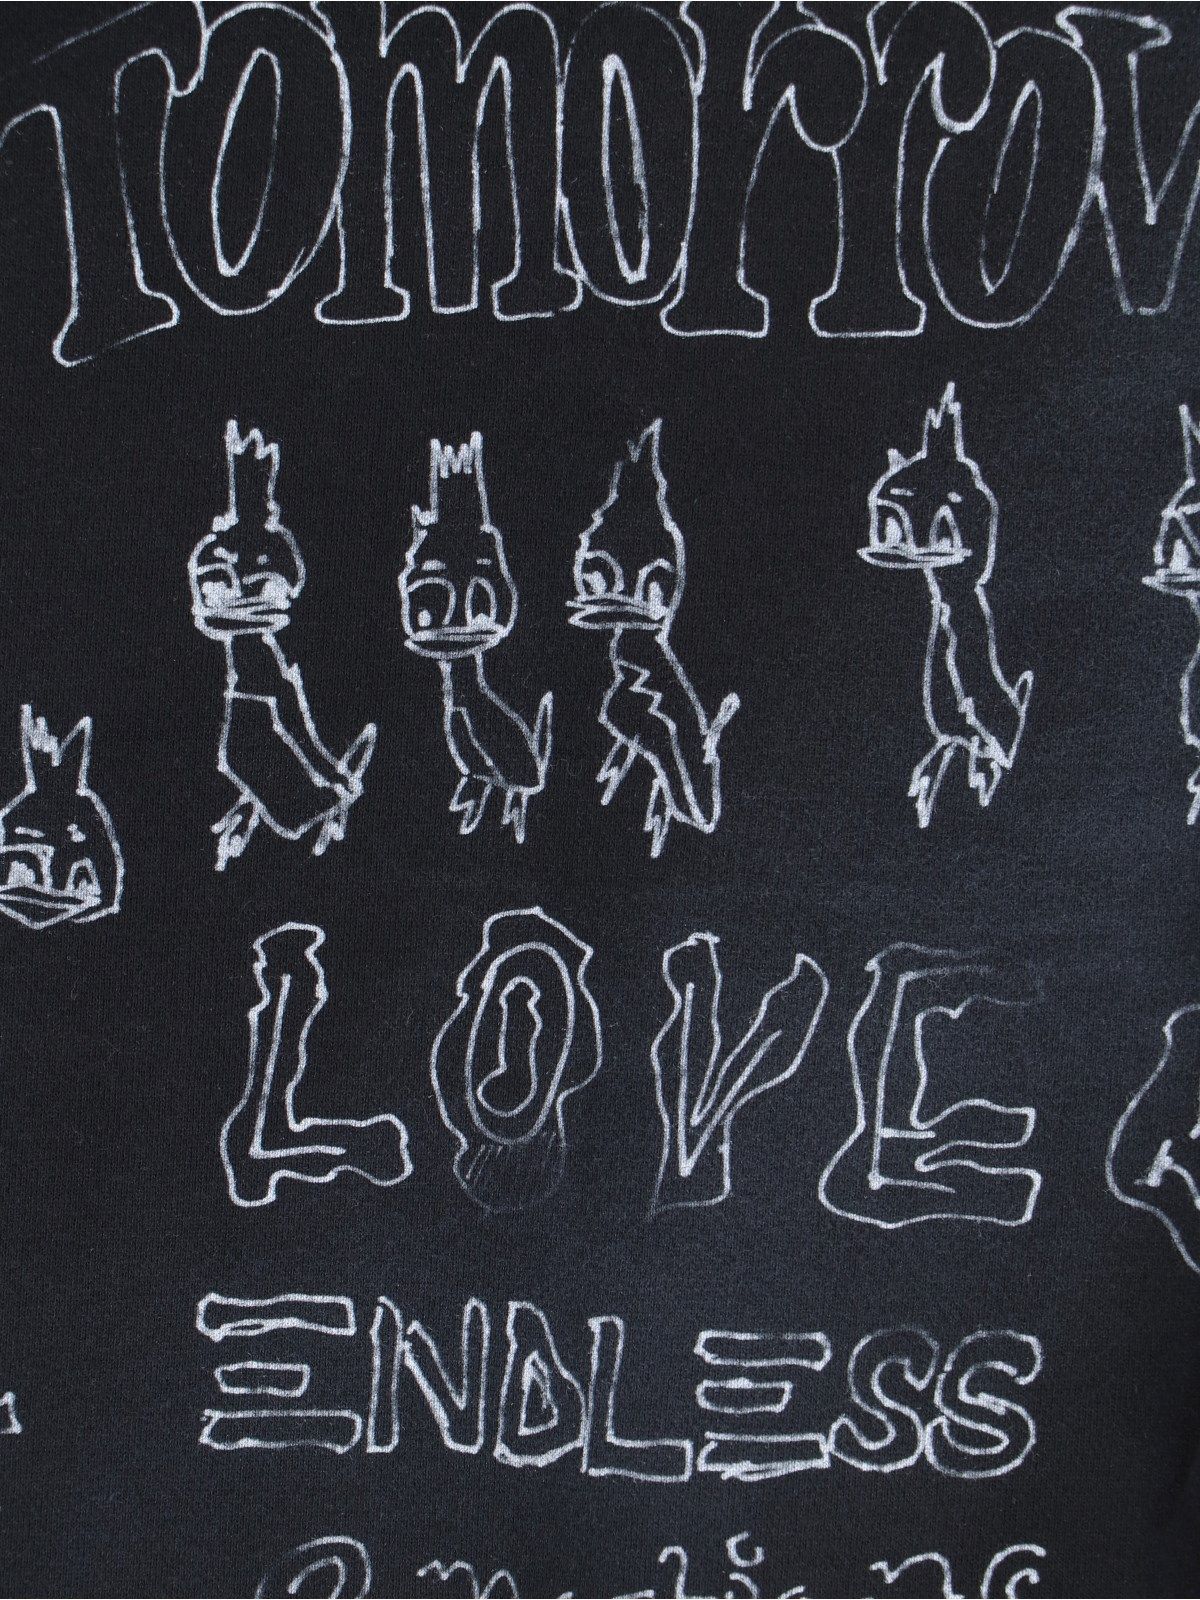 Tomorrow
LOVE
ENDLESS